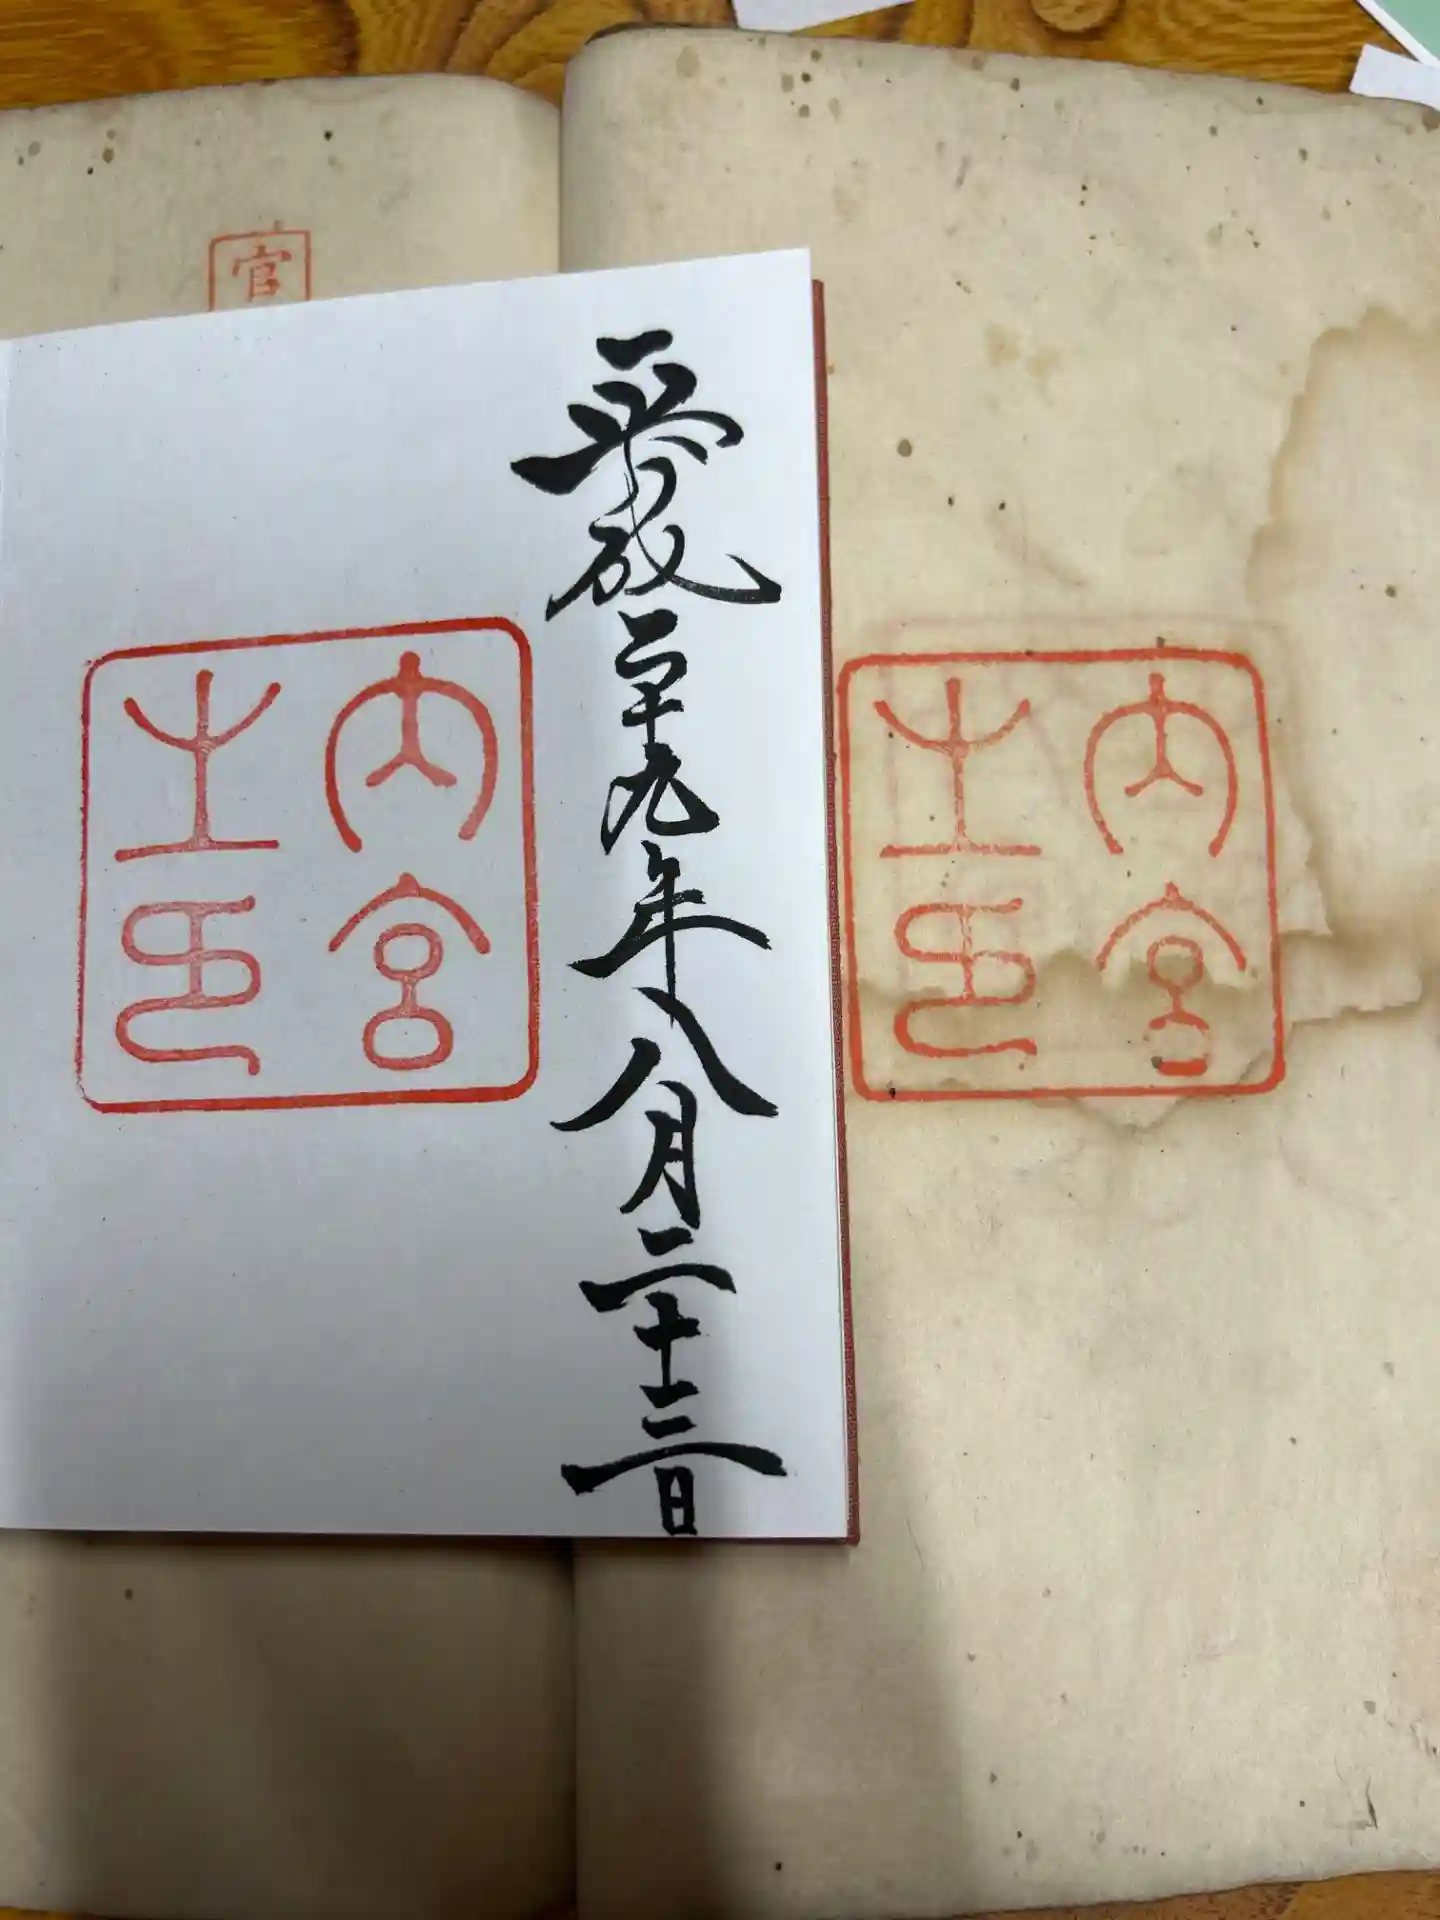 平成二十九年八月二十三日
内宮
之印
内宮
之印
官